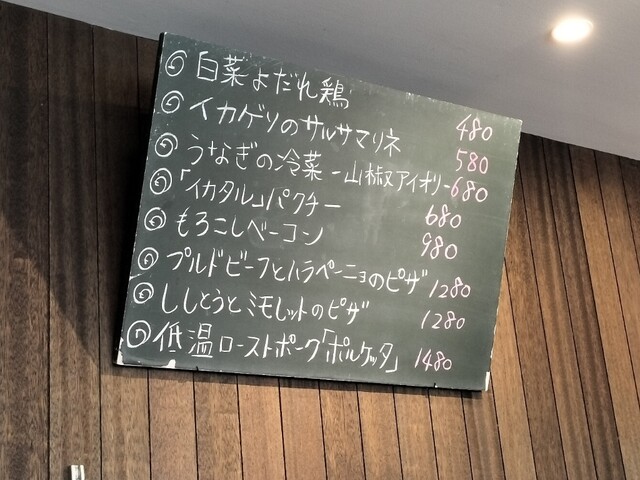 白菜よだれ鶏 480
イカゲソのサルサマリネ 580
うなぎの冷菜 -山椒アイオリ- 680
「イカタル」パクチー 680
もろこしベーコン 980
プルドビーフとハラペーニョのピザ 1280
ししとうとミモレットのピザ 1280
低温ローストポーク「ポルケッタ」 1480